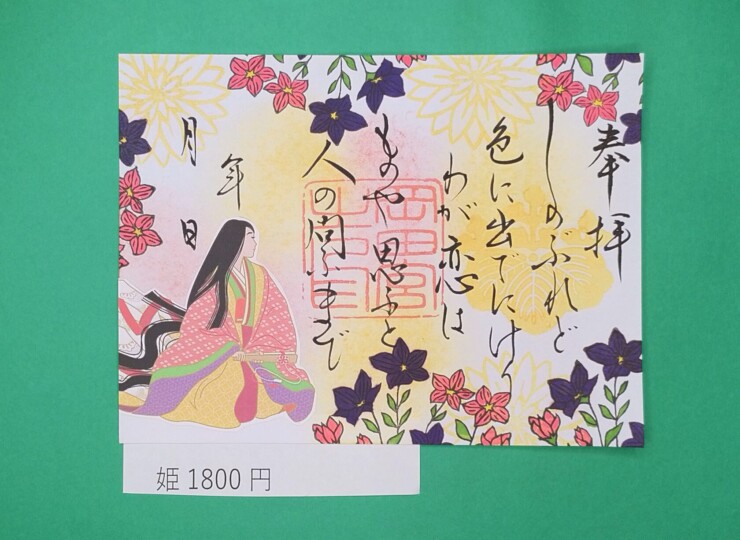 奉拝
しのぶれど
色に出でにけり
わが恋は
ものや思ふと
人の問ふまで
年
月 日
姫 1800 円